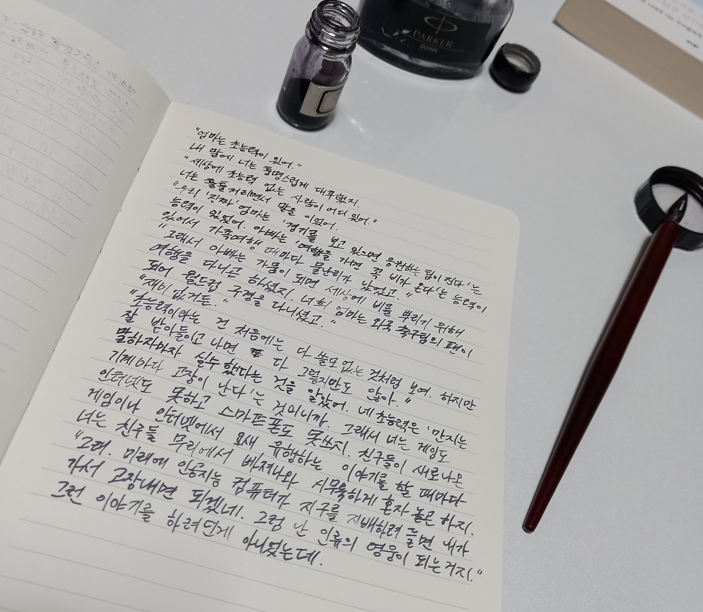 PARKER
Quink
"엄마는 초능력이 있어."
내 말에 너는 퉁명스럽게 대꾸했지.
"세상에 초능력 없는 사람이 어디 있어."
너는 툴툴거리면서 말을 이었어.
"우리 '진짜' 엄마는 '경기를 보고 있으면 응원하는 팀이 진다'는
능력이 있었어. 아빠는 '여행을 가면 꼭 비가 온다'는 능력이
있어서 가족여행 때마다 물난리가 났었고."
"그래서 아빠는 가뭄이 되면 세상에 비를 뿌리기 위해
여행을 다니곤 하셨지. 너희 엄마는 외국 축구팀의 팬이
되어 월드컵 구경을 다니셨고."
"재미없거든."
"초능력이라는 건 처음에는 다 쓸모없는 것처럼 보여. 하지만
잘 받아들이고 나면 다 그렇지만도 않아."
말하자마자 실수했다는 것을 알았어. 네 초능력은 '만지는
기계마다 고장이 난다'는 것이니까. 그래서 너는 게임도
인터넷도 못하고 스마트폰도 못쓰지. 친구들이 새로나온
게임이나 인터넷에서 요새 유행하는 이야기를 할 때마다
너는 친구들 무리에서 빠져나와 시무룩하게 혼자 놀곤 하지.
"그래. 미래에 인공지능 컴퓨터가 지구를 지배하려 들면 내가
가서 고장내면 되겠네. 그럼 난 인류의 영웅이 되는거지."
그런 이야기를 하려던게 아니었는데.